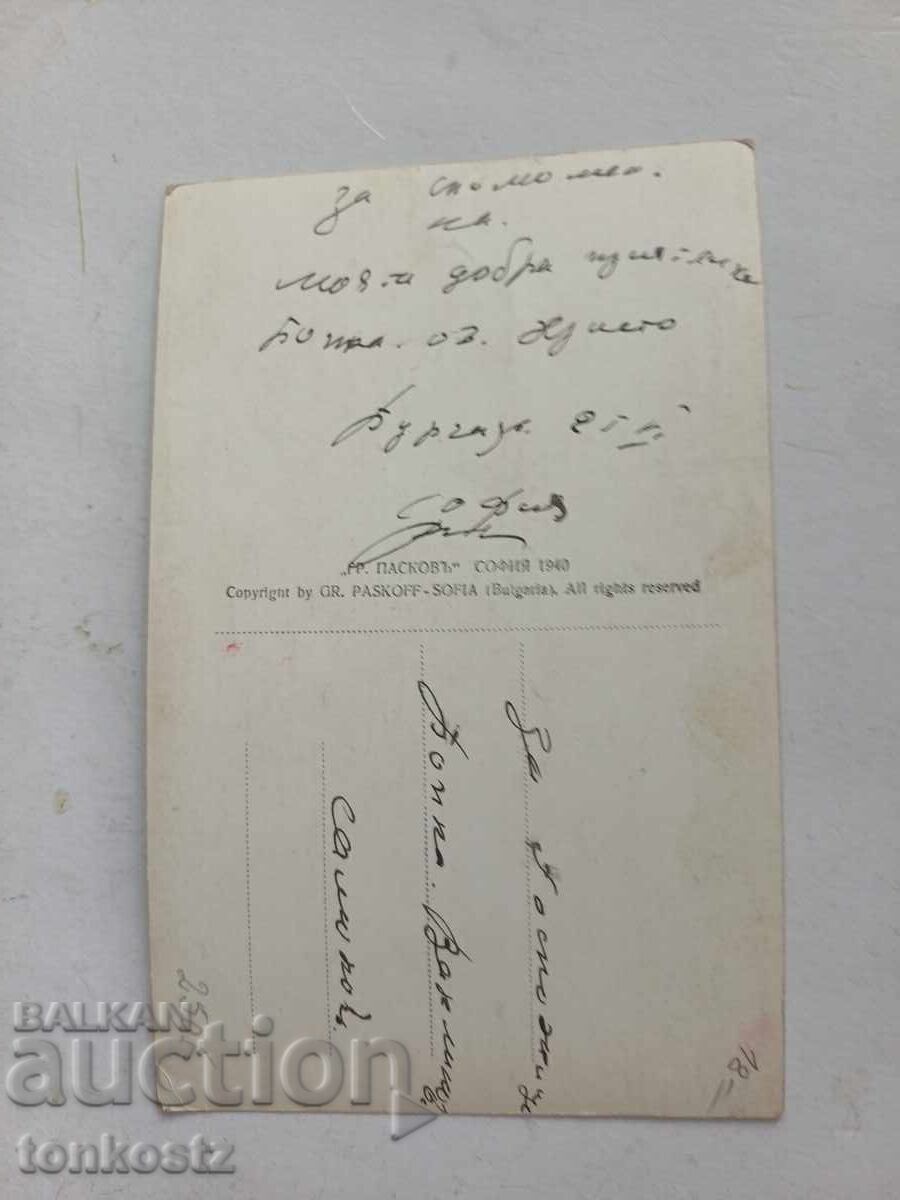 За спомомен.
на.
моята добра приятелка
Бонка. от. Христо
Бургазъ.
София
„ГР. ПАСКОВЪ" СОФИЯ 1940
Copyright by GR. PASKOFF-SOFIA (Bulgaria). All rights reserved
За Госпожица
Бонка.
18
BALKAN
auction
tonkostz